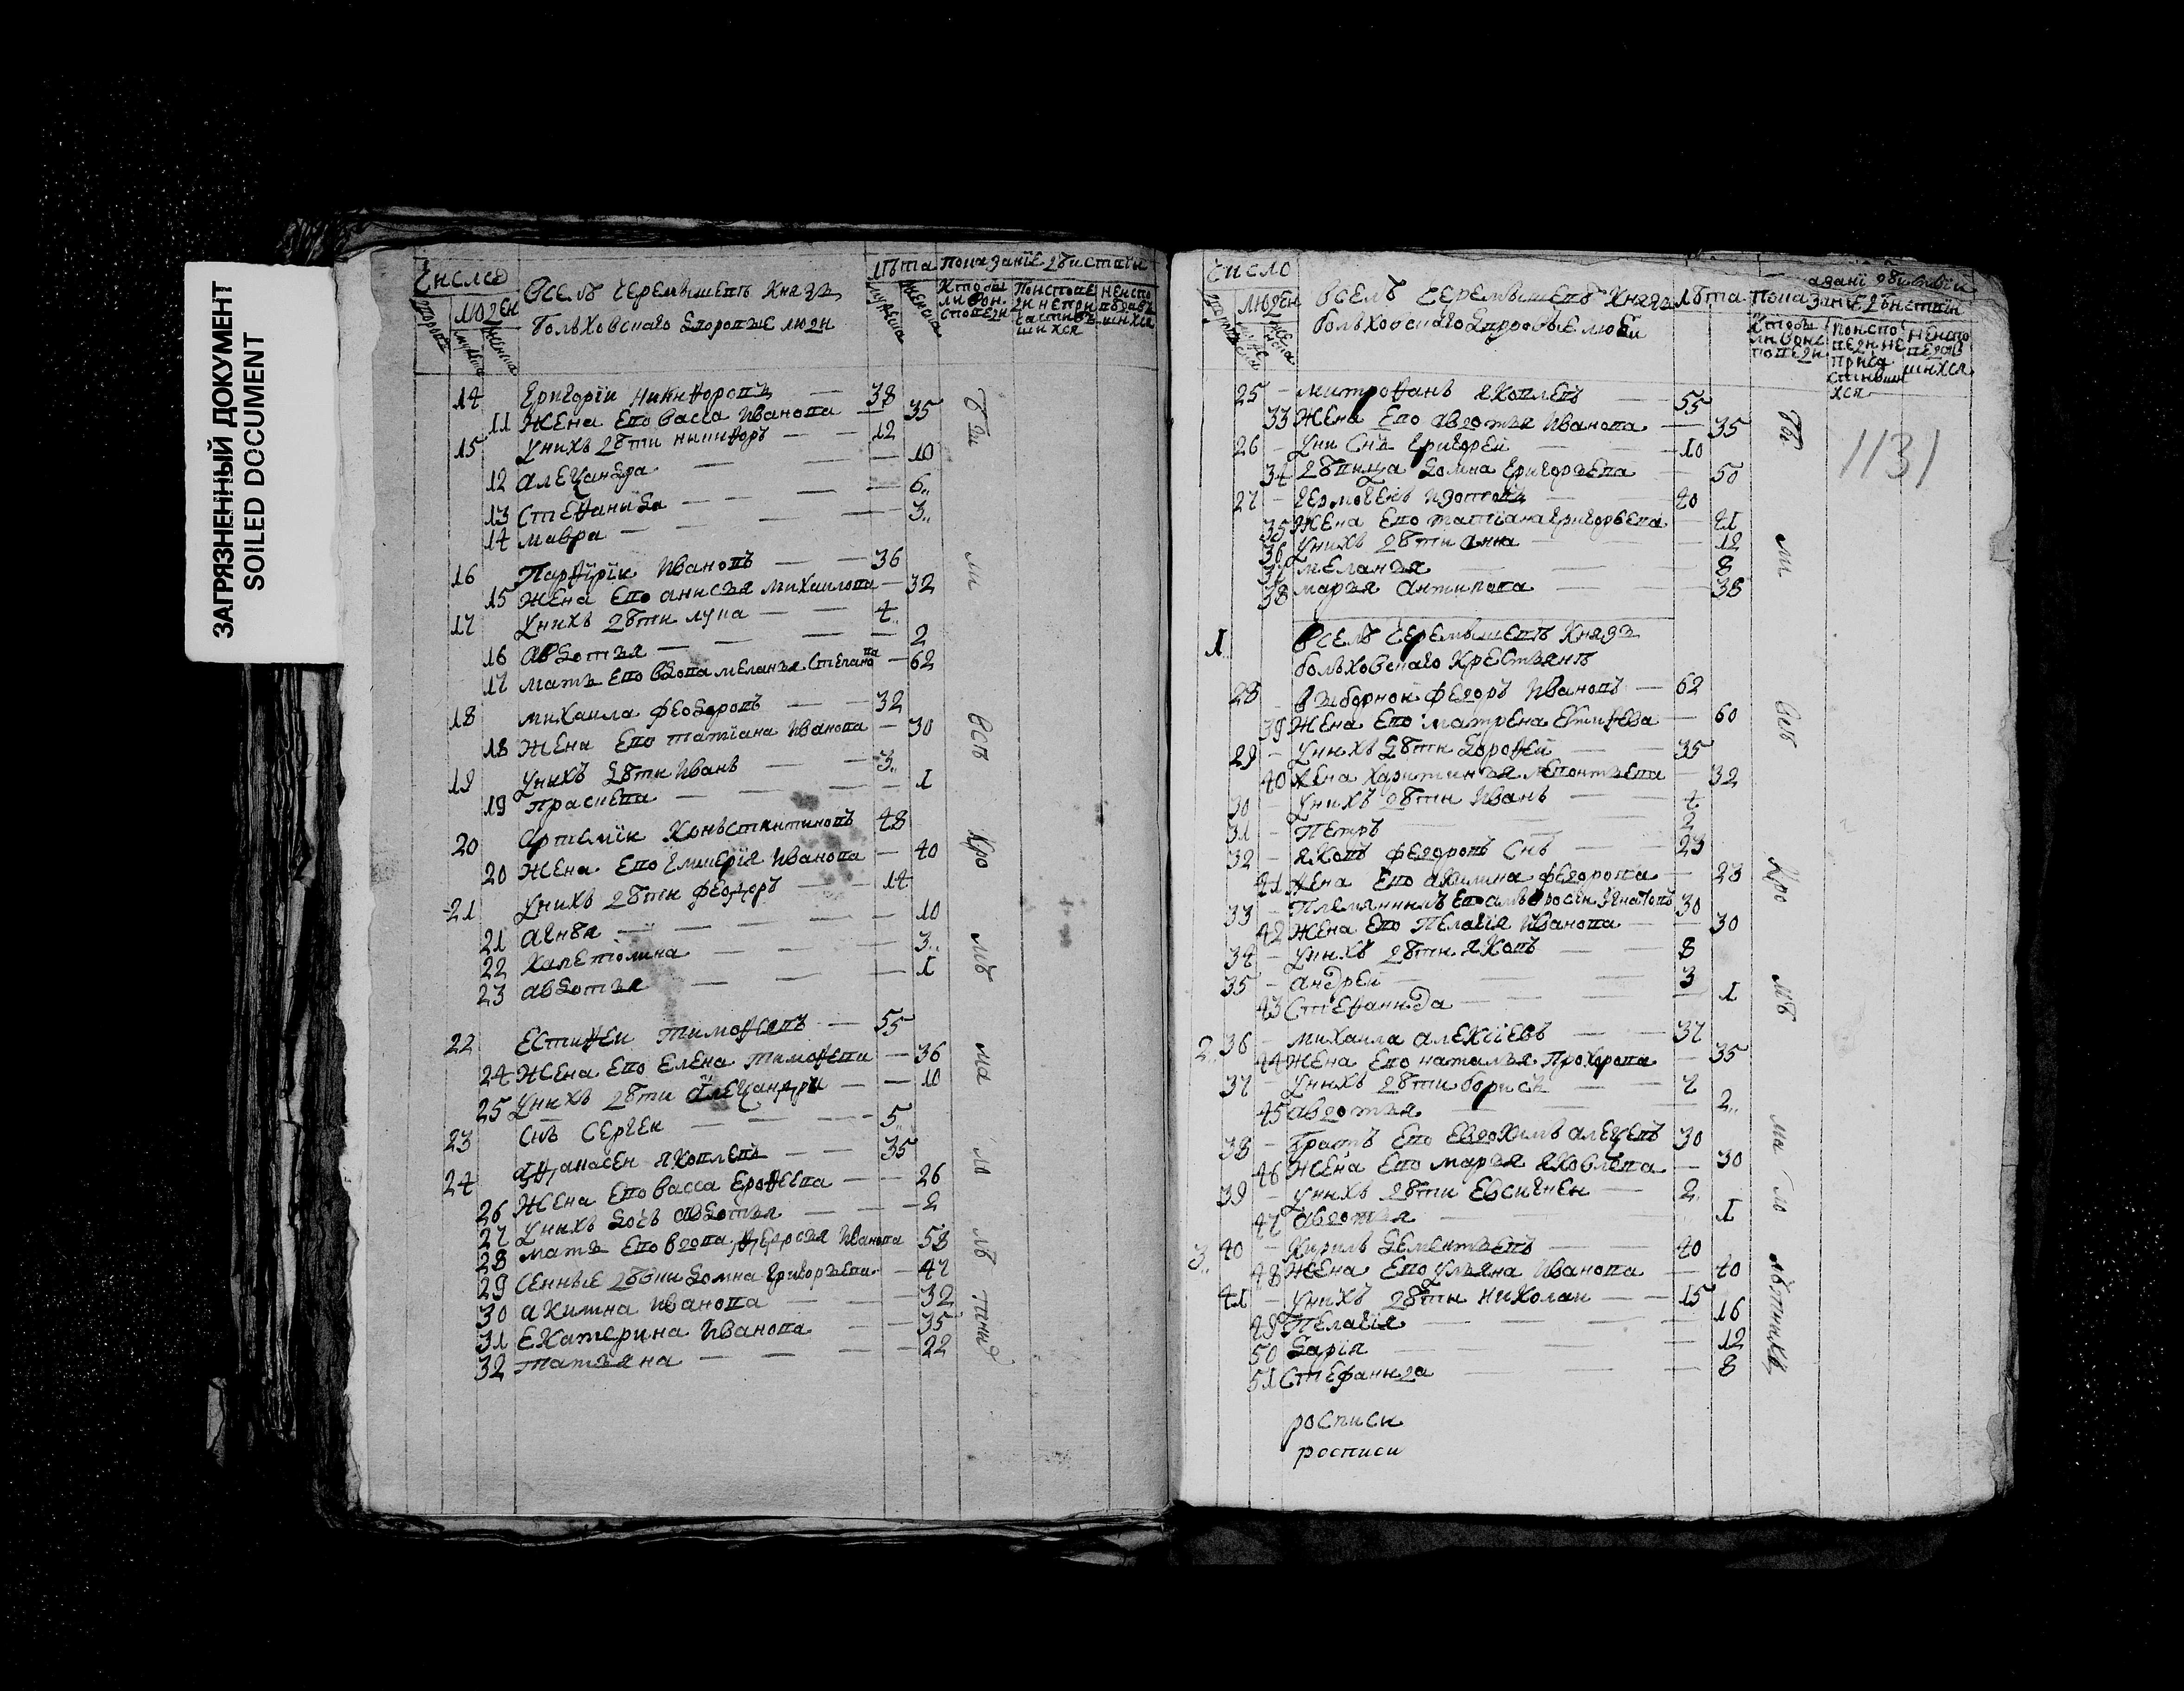 ЗАГРЯЗНЕННЫЙ ДОКУМЕНТ
SOILED DOCUMENT
Число
людей
Вселѣ Черемышевѣ Князя
Болховскаго дворовые люди
Лѣта Показанїе дѣйства
14 Григорїи Никифоровъ — 38
11 Жена Ево васса Иванова — 35
15 Унихъ дѣти никифоръ — 12
12 алеѯандра — 10
13 Стефанида — 6
14 мавра — 3
16 Парфїрїи Ивановъ — 36
15 Жена Ево анисья Михаилова — 32
17 Унихъ дѣти лупа — 4
16 авдотья — 2
17 мать Ево вдова меланья Степанова — 62
18 михаила феодоровъ — 32
18 Жена Ево татїана Иванова — 30
19 Унихъ дѣти Иванъ — 3
19 праскева — 1
20 Артемїи Константиновъ 48
20 Жена Ево Гликерїя Иванова — 40
21 Унихъ дѣти феодоръ — 14
21 агнѣя — 10
22 — 3
23 авдотья — 1
22 Естифеи тимофеевъ — 55
24 Жена Ево Елена тимофева — 36
25 Унихъ дѣти алеѯандра — 10
23 Снъ Сергеи — 5
24 афанасеи яковлевъ — 35
26 Жена Ево васса Ерофеева — 26
27 Унихъ дочь авдотья — 2
28 мать Ево вдова Иванова 58
29 Сенные дѣвки домна григорьева — 47
30 акилина иванова — 32
31 Екатерина Иванова — 35
32 татьяна — 22
Число
людей
Вселѣ Черемышевѣ Князя
болховскаго дворовые люди
Лѣта Показанїе дѣйства
1131
25 — митрофанъ яковлевъ — 55
33 Жена Ево авдотья Иванова — 35
26 — Уни Снъ григореи — 10
34 вдовица домна григорьева — 50
27 — гермогенъ изотовъ — 40
35 Жена Ево татїана григорьева — 41
36 Унихъ дѣти анна — 12
37 меланья — 8
38 марья Антипова — 38
1 Вселѣ Черемышевѣ Князя
болховскаго Крестьянъ
28 — выборной федоръ Ивановъ — 62
39 Жена Ево матрена Естифева — 60
29 — Унихъ дѣти дорофеи — 35
40 Жена Харитинья леонтьева — 32
30 — Унихъ дѣти Иванъ — 4
31 — Петръ — 2
32 — яковъ федоровъ Снъ — 23
41 Жена Ево акилина федорова — 23
33 — Племянникъ Ево амъвросїи Игнатовъ 30
42 Жена Ево Пелагїя Иванова — 30
34 — Унихъ дѣти яковъ — 8
35 — андреи — 3
43 Стефанида — 1
2 36 — михаила алексїевъ — 37
44 Жена Ево наталья Прохорова — 35
37 — Унихъ дѣти борисъ — 7
45 авдотья — 2
38 — братъ Ево Евдокимъ алеѯевъ 30
46 Жена Ево марья яковлева — 30
39 — Унихъ дѣти Евсигнеи — 2
47 авдотья — 1
3 40 — Кирилъ дементьевъ — 40
48 Жена Ево ульяна Иванова — 40
41 — Унихъ дѣти николаи — 15
49 Пелагїя — 16
50 дарїя — 12
51 Стефанида — 8
росписи
росписи